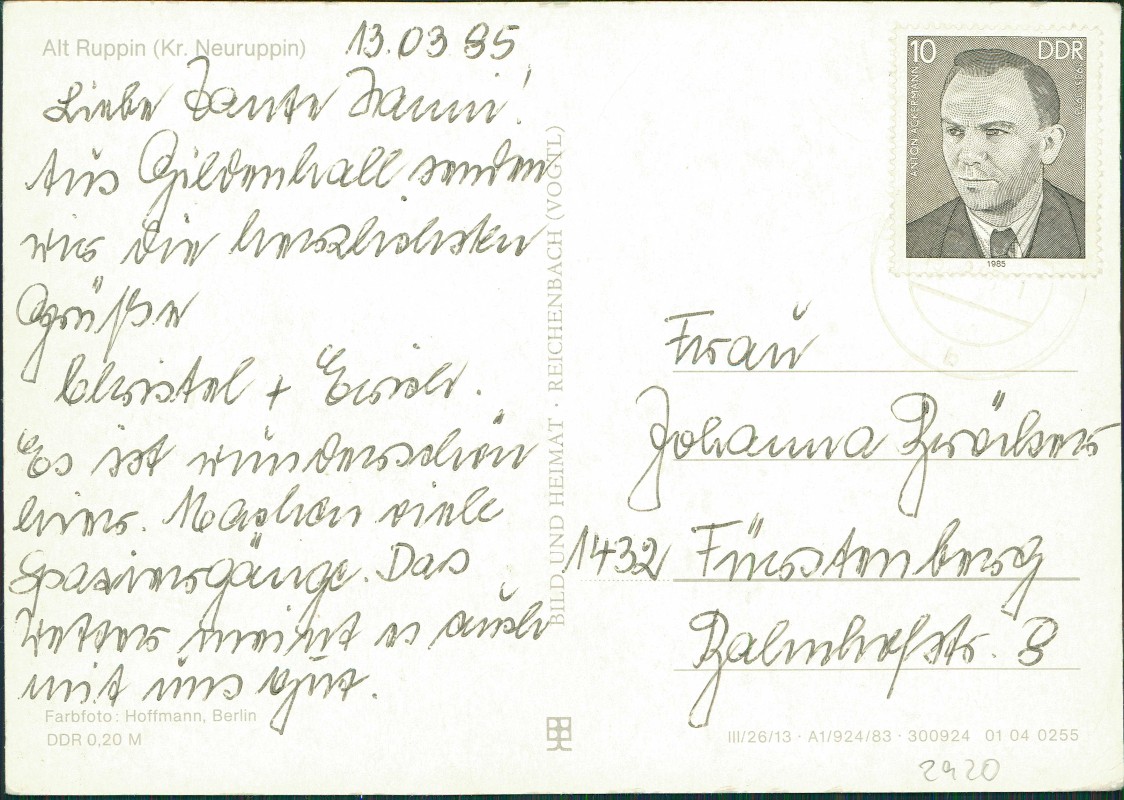 Alt Ruppin (Kr. Neuruppin)
13.03.85
Liebe Tante Hanni!
Aus Gildenhall senden
wir die herzlichsten
Grüße
Christel + Erich.
Es ist wunderschön
hier. Machen viele
Spaziergänge. Das
Wetter meint es auch
mit uns gut.
Farbfoto: Hoffmann, Berlin
DDR 0,20 M
BILD UND HEIMAT · REICHENBACH (VOGTL)
10 DDR
ANTON ACKERMANN
1985
Frau
Johanna
1432 Fürstenberg
Bahnhofstr. 8
III/26/13 · A1/924/83 · 300924 01 04 0255
2920